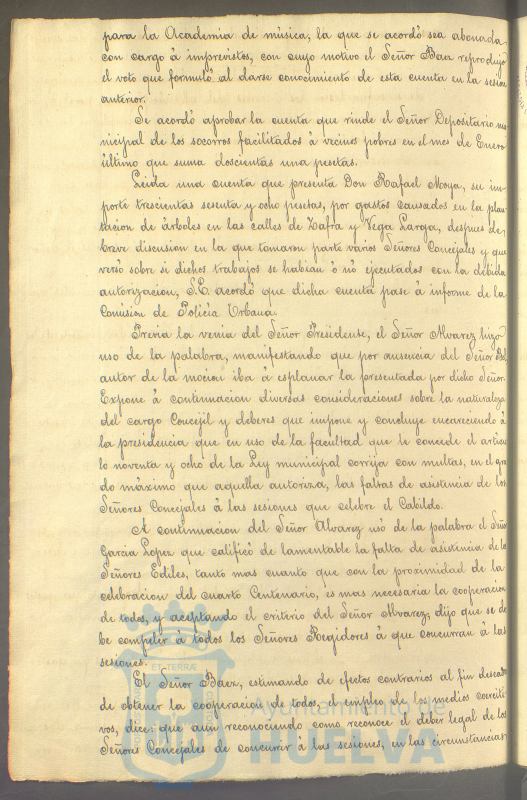 para la Academia de música, la que se acordó sea abonada
con cargo á imprevistos, con cuyo motivo el Señor Baez reprodujo
el voto que formuló al darse conocimiento de esta cuenta en la sesion
anterior.
Se acordó aprobar la cuenta que rinde el Señor Depositario mu-
nicipal de los socorros facilitados á vecinos pobres en el mes de Enero
último que suma doscientas una pesetas.
Leida una cuenta que presenta Don Rafael Moya, su im-
porte trescientas sesenta y ocho pesetas, por gastos causados en la plan-
tacion de árboles en las calles de Zafra y Vega Larga, despues de
breve discusion en la que tomaron parte varios Señores Concejales y que
versó sobre si dichos trabajos se habian ó nó ejecutados con la debida
autorizacion, S.E. acordó que dicha cuenta pase á informe de la
Comision de Policía Urbana.
Previa la venia del Señor Presidente, el Señor Alvarez hizo
uso de la palabra, manifestando que por ausencia del Señor
autor de la mocion iba á esplanar la presentada por dicho Señor.
Expone á continuacion diversas consideraciones sobre la naturaleza
del cargo Concejil y deberes que impone y concluye encareciendo á
la presidencia que en uso de la facultad que le concede el articu-
lo noventa y ocho de la Ley municipal corrija con multas, en el gra-
do máximo que aquella autoriza, las faltas de asistencia de los
Señores Concejales á las sesiones que celebre el Cabildo.
A continuacion del Señor Alvarez usó de la palabra el Señor
Garcia Lopez que calificó de lamentable la falta de asistencia de los
Señores Ediles, tanto mas cuanto que con la proximidad de la
celebracion del cuarto Centenario, es mas necesaria la cooperacion
de todos, y aceptando el criterio del Señor Alvarez, dijo que se de-
be compeler á todos los Señores Regidores á que concurran á las
sesiones.
El Señor Baez, estimando de efectos contrarios al fin deseado
de obtener la cooperacion de todos, el empleo de los medios coerciti-
vos, dice: que aun reconociendo como reconoce el deber legal de los
Señores Concejales de concurrir á las sesiones, en las circunstancias
ET TERRÆ
Ayuntamiento de
HUELVA